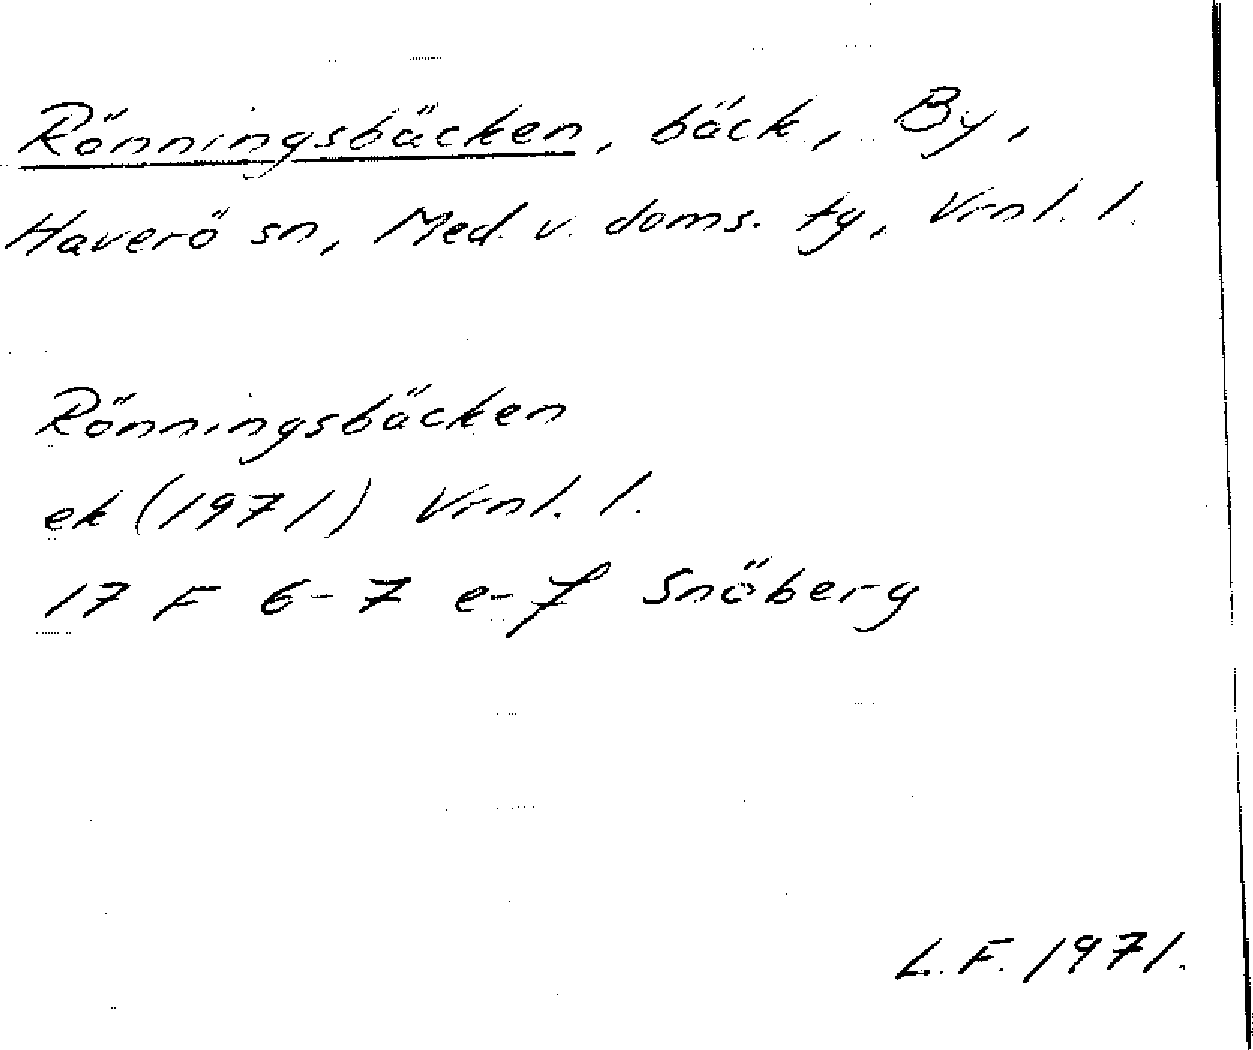 Rönningsbäcken, bäck, By,
Haverö sn, Med. v. doms. tg, Vrnl. l.
Rönningsbäcken
ek (1971) Vrnl. l.
17 F 6-7 e-f Snöberg
L.F. 1971.